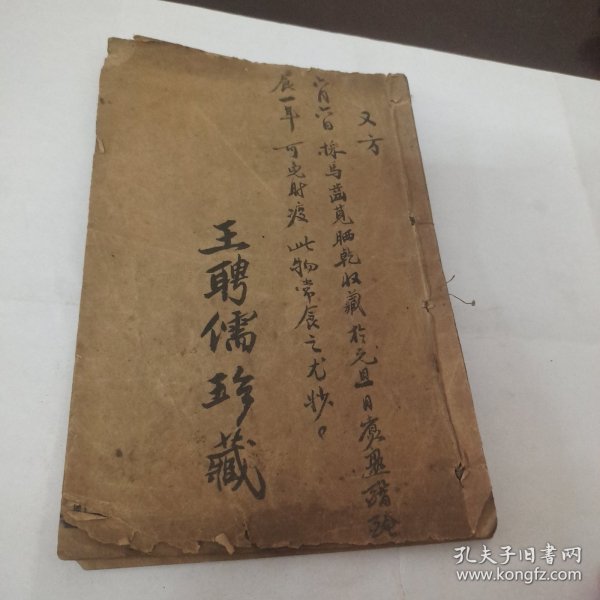 又方
六月六日採馬齒莧晒乾收藏於元旦日煮熟醋醃
食一年可免時疫此物常食之尤妙。
王聘儒珍藏
孔夫子旧书网
www.kongfz.com